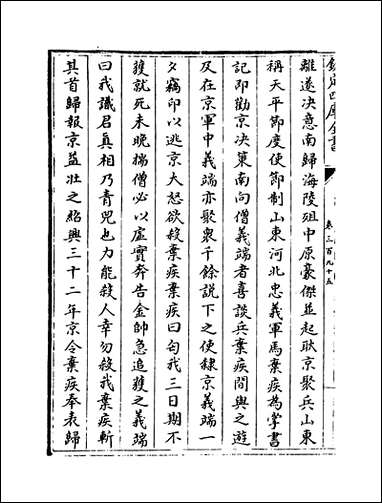 欽定四庫全書
卷三百九十五
離遂決意南歸海陵殂中原豪傑並起耿京聚兵山東
稱天平節度使節制山東河北忠義軍馬棄疾為掌書
記即勸京決策南向僧義端者喜談兵棄疾間與之遊
及在京軍中義端亦聚衆千餘説下之使隸京義端一
夕竊印以逃京大怒欲殺棄疾棄疾曰匄我三日期不
獲就死未晚揣僧必以虛實奔告金帥急追獲之義端
曰我識君真相乃青兕也力能殺人幸勿殺我棄疾斬
其首歸報京益壯之紹興三十二年京令棄疾奉表歸